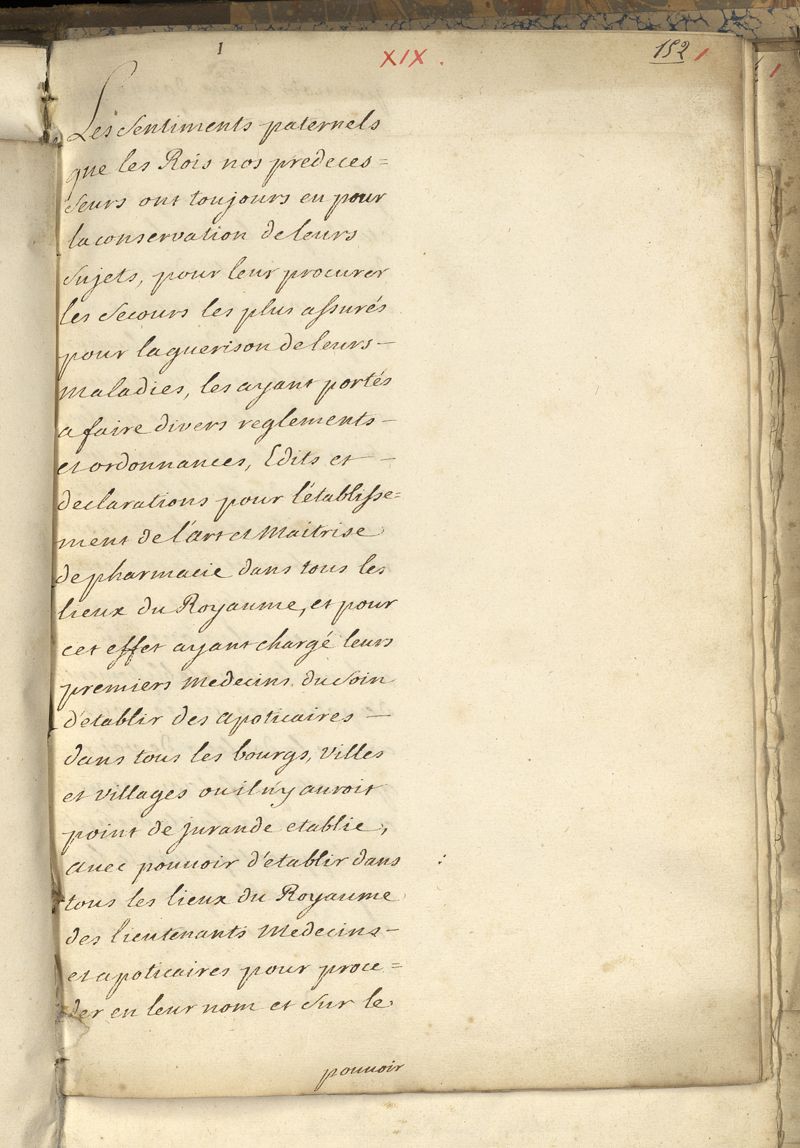 I
XIX .
152 1
Les sentiments paternels
que les Rois nos predeces=
seurs ont toujours eu pour
la conservation de leurs
sujets, pour leur procurer
les secours les plus assurés
pour la guerison de leurs-
maladies, les ayant portés
a faire divers reglements-
et ordonnances, Edits et -
declarations pour l'établisse=
ment de l'art et Maitrise
de pharmacie dans tous les
lieux du Royaume, et pour
cet effet ayant chargé leurs
premiers Medecins du soin
d'établir des apoticaires -
dans tous les bourgs, villes
et villages ou il n'y auroit
point de jurande etablie,
avec pouvoir d'établir dans
tous les lieux du Royaume
des lieutenants Medecins-
et apoticaires pour proce=
der en leur nom et sur le
pouvoir